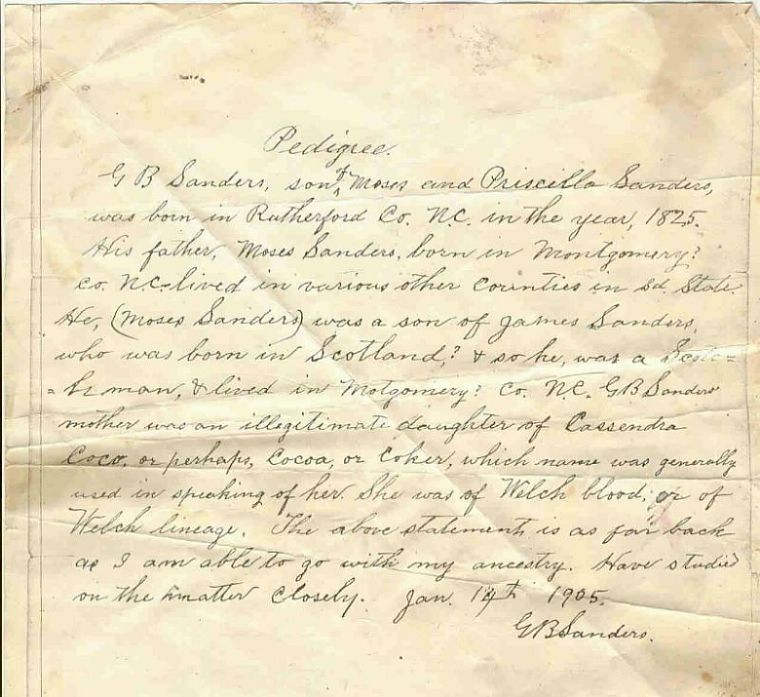 Pedigree.
G B Sanders, son of Moses and Priscilla Sanders,
was born in Rutherford Co. N.C. in the year, 1825.
His father, Moses Sanders, born in Montgomery?
Co. N.C. lived in various other counties in sd. State.
He, (Moses Sanders) was a son of James Sanders,
who was born in Scotland,? & so he, was a Scotc=
=h man, & lived in Motgomery? Co. N.C. G B Sanders'
mother was an illegitimate daughter of Cassendra
Coco, or perhaps, Cocoa, or Coker, which name was generally
used in speaking of her. She was of Welch blood, or of
Welch lineage. The above statements is as far back
as I am able to go with my ancestry. Have studied
on the matter closely. Jan. 1905.
G B Sanders.